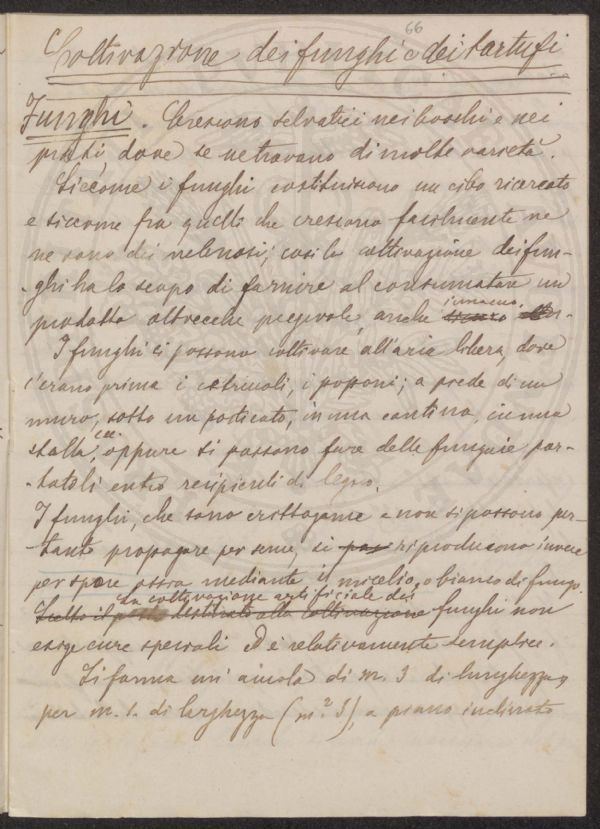 66
Coltivazione dei funghi e dei tartufi
Funghi. Crescono selvatici nei boschi e nei
prati, dove se ne trovano di molte varietà.
Siccome i funghi costituiscono un cibo ricercato
e siccome fra quelli che crescono facilmente ne
ne sono dei velenosi; così la coltivazione dei fun-
-ghi ha lo scopo di fornire al consumatore un
prodotto oltrecche pregevole, anche innocuo.
I funghi si possono coltivare all'aria libera, dove
c'erano prima i cetriuoli, i poponi; a piede di un
muro, sotto un porticato, in una cantina, in una
stalla, ecc. oppure si possono fare delle fungaie por-
-tatoli entro recipienti di legno.
I funghi, che sono crittogame e non si possono per-
-tanto propagare per seme, si riproducono invece
per spore ossia mediante il micelio, o bianco di fungo.
La coltivazione artificiale dei
Tutto il posto destinato alla coltivazione funghi non
esige cure speciali ed è relativamente semplice.
Si forma un'aiuola di m. 3 di lunghezza,
per m. 1. di larghezza (m² 3), a piano inclinato